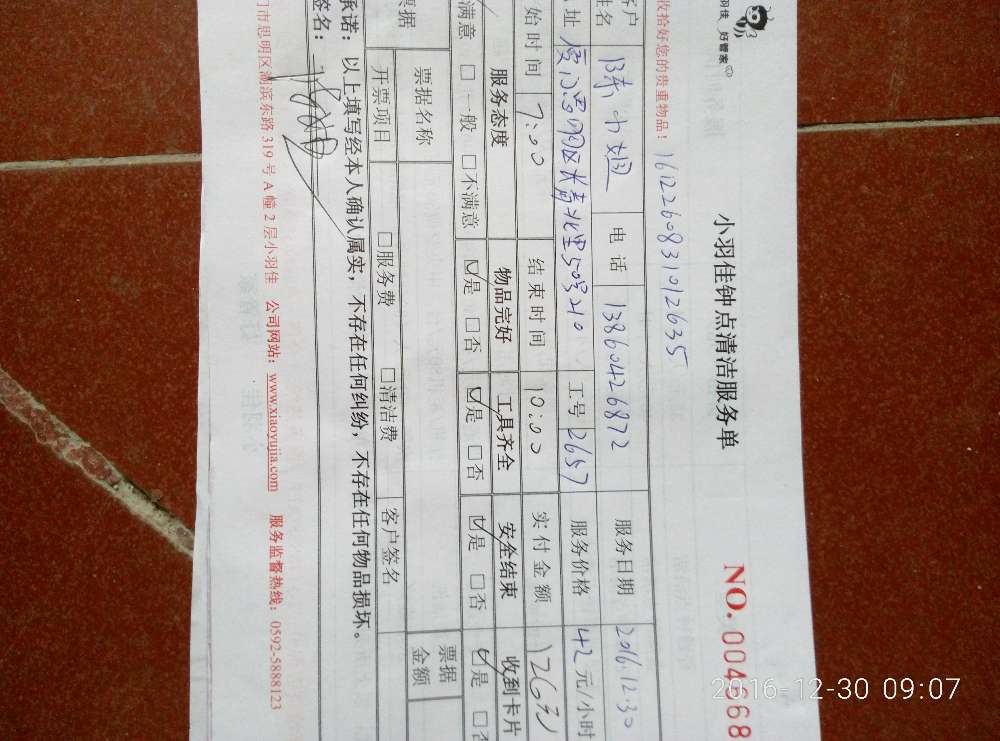 羽佳 好管家
小羽佳钟点清洁服务单
NO. 004668
收拾好您的贵重物品！ 1612260831012635
客户姓名 陈小姐 电话 13860426872 服务日期 2016.12.30
地址 厦门思明区长青北里50号210 工号 2657 服务价格 42元/小时
始时间 7:00 结束时间 10:00 实付金额 126元
服务态度 物品完好 工具齐全 安全结束 收到卡片
满意 □一般 □不满意 ☑是 □否 ☑是 □否 ☑是 □否 ☑是 □
票据 票据名称 票据金额
开票项目 □服务费 □清洁费 客户签名
承诺：以上填写经本人确认属实，不存在任何纠纷，不存在任何物品损坏。
签名：
门市思明区湖滨东路319号A幢2层小羽佳 公司网站：www.xiaoyujia.com 服务监督热线：0592-5888123
2016-12-30 09:07